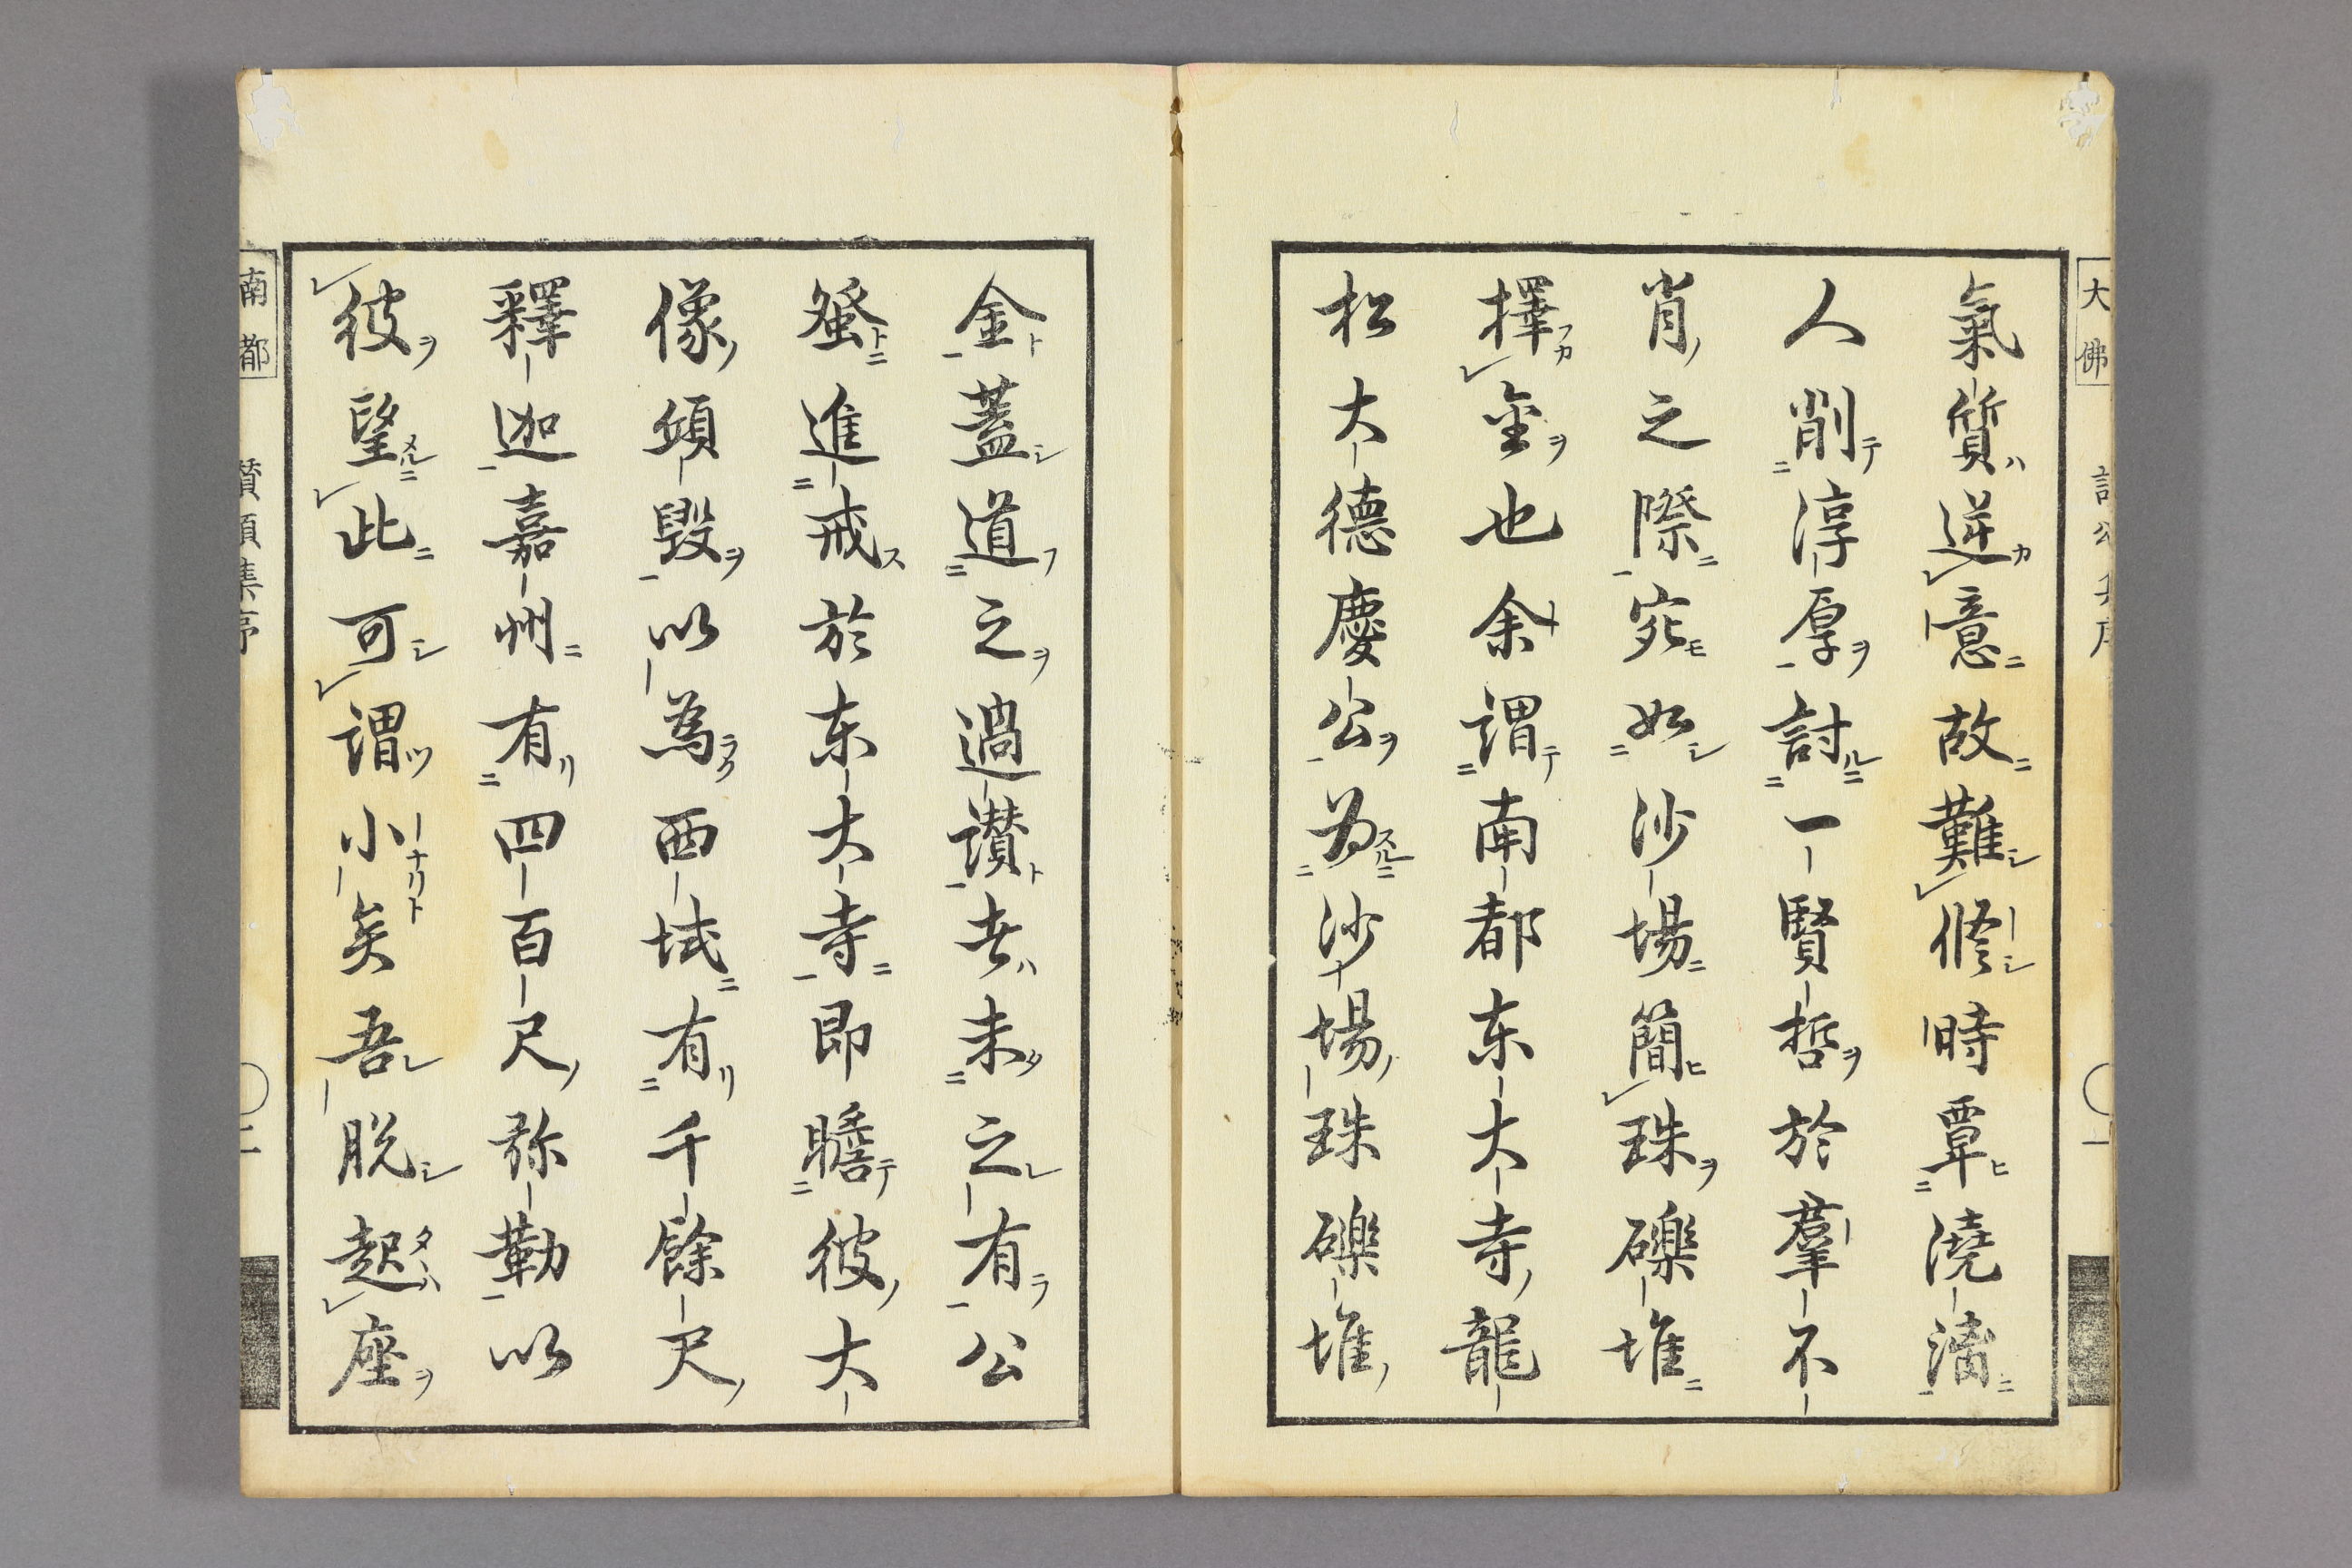 大佛
氣質逆意故難修時覃澆漓
人削淳厚討一賢哲於羣不
肖之際宛如沙場簡珠礫堆
擇金也余謂南都东大寺龍
松大德慶公为沙場珠礫堆
金蓋道之過讃者未之有公
發進戒於东大寺即瞻彼大
像傾毀以為西域有千餘尺
釋迦嘉州有四百尺弥勒以
彼望此可謂小矣吾脱起座
南都 讃頌集序 二